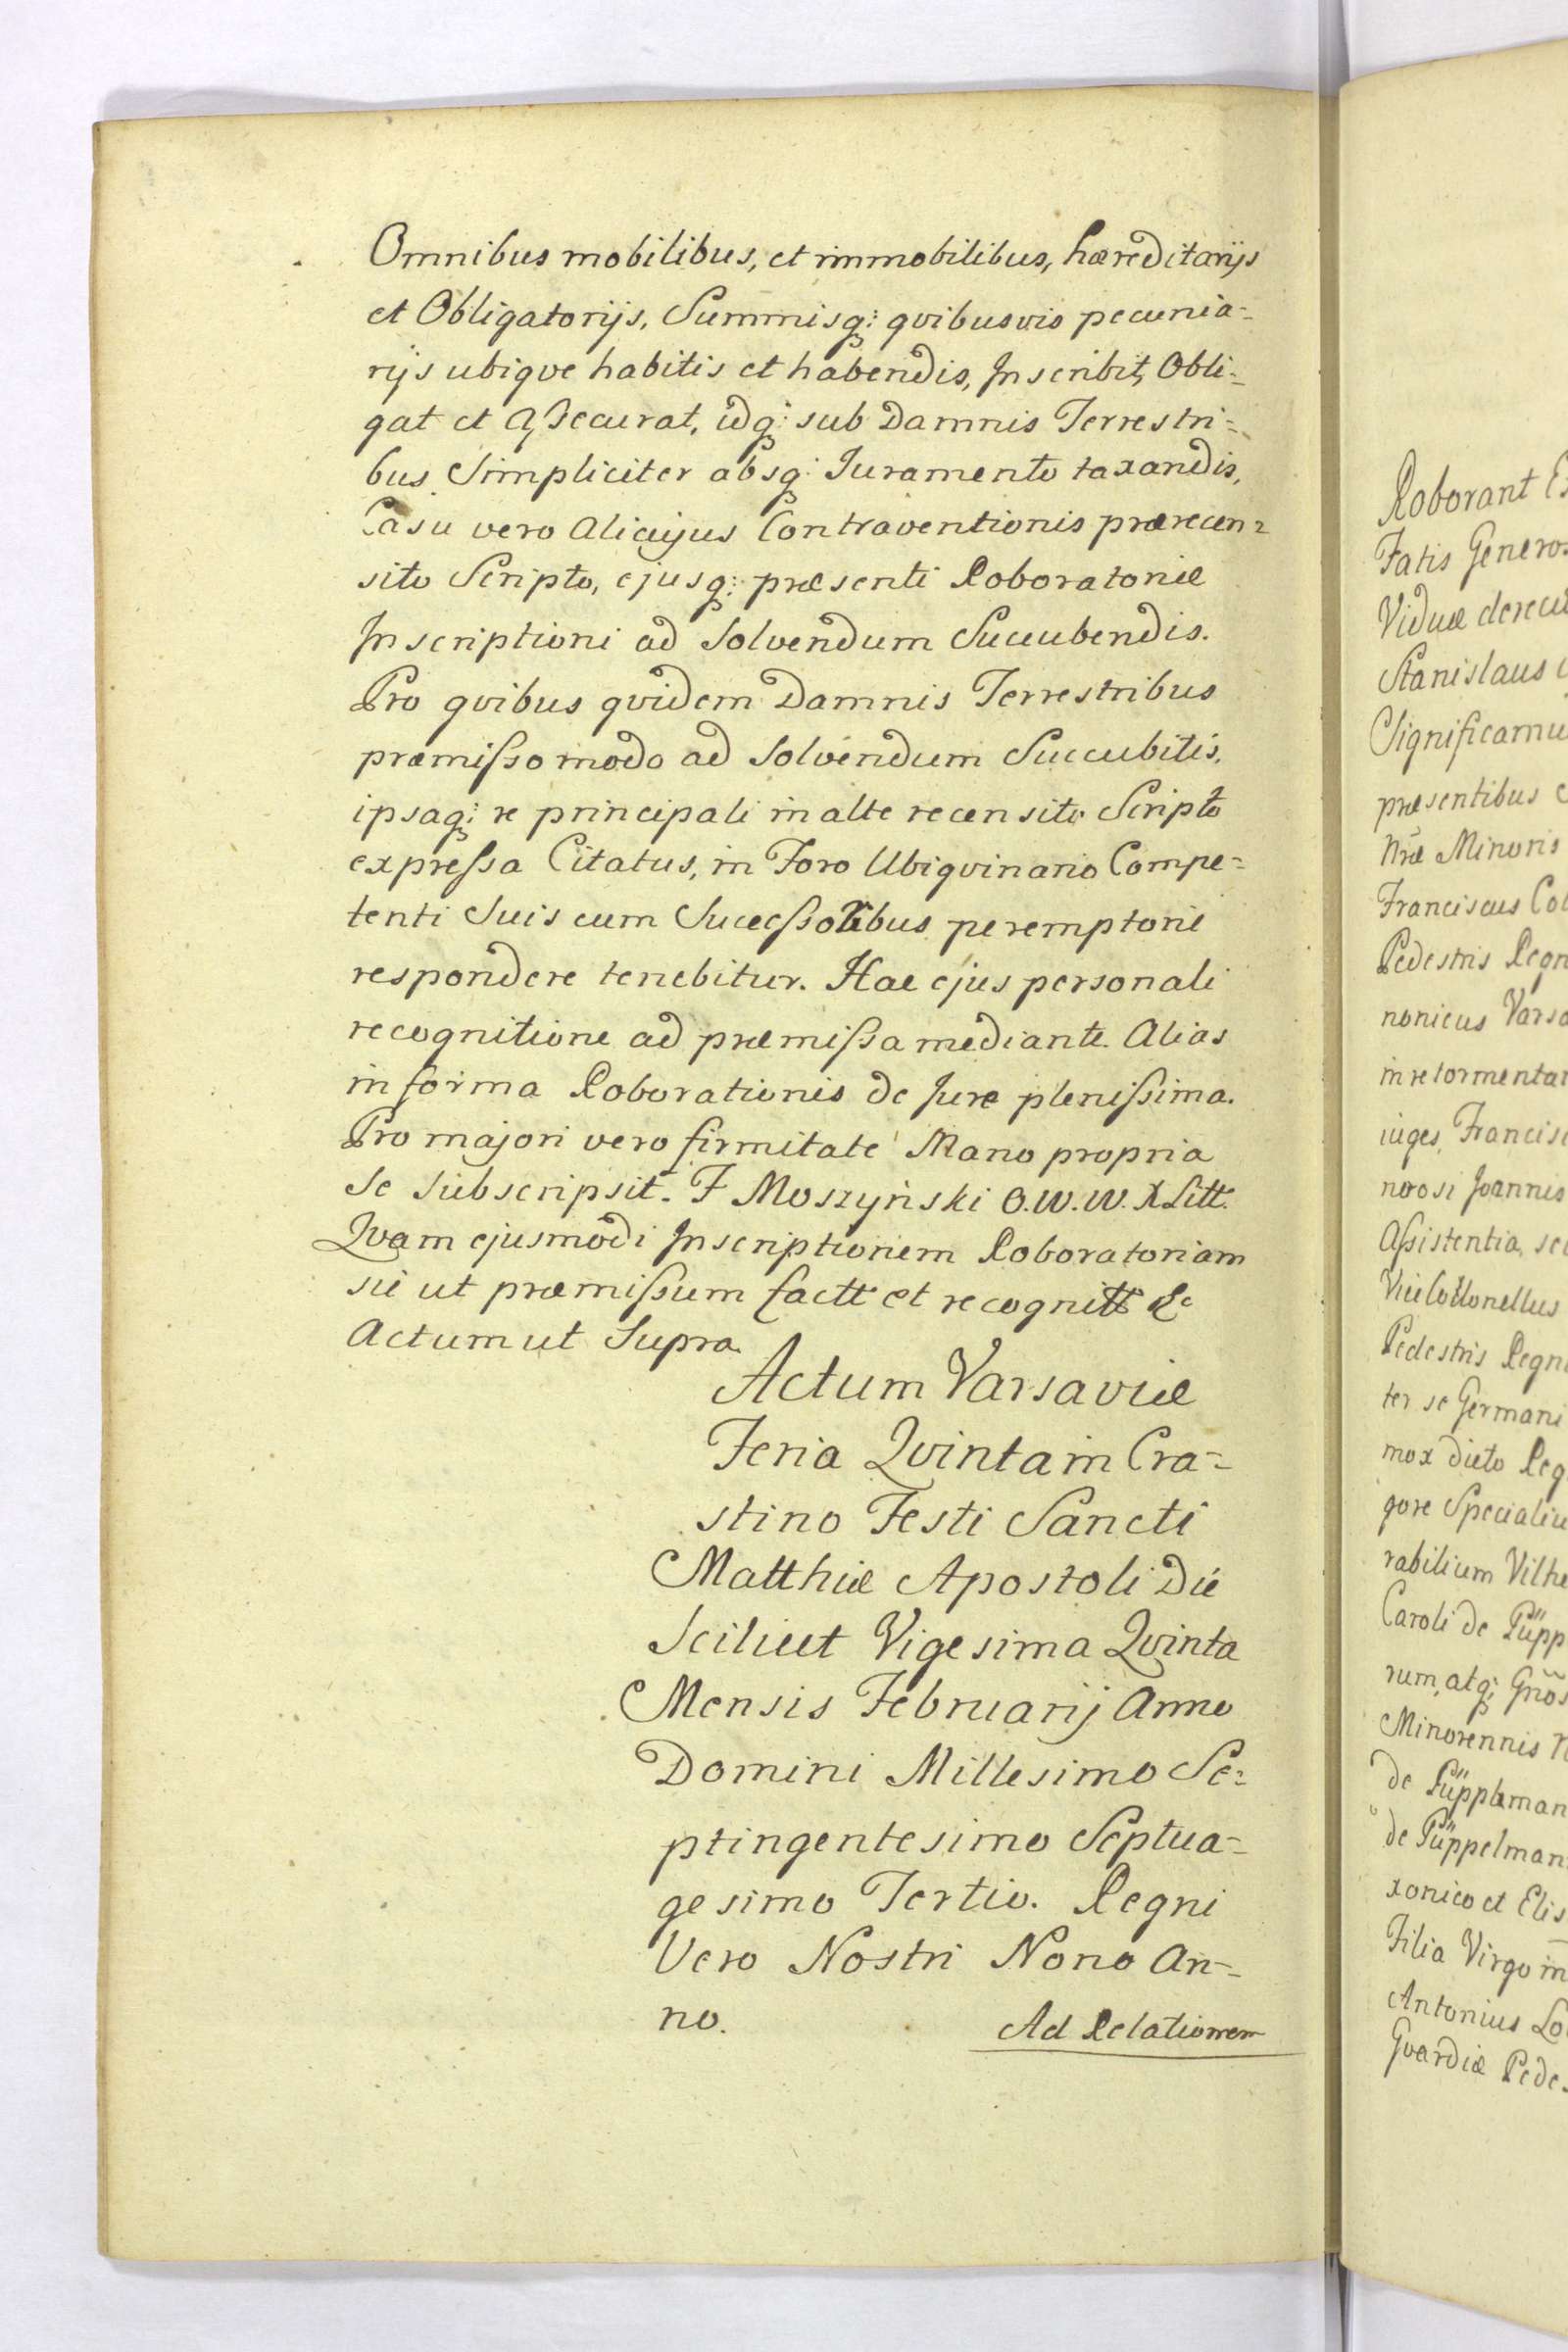 Omnibus mobilibus, et immobilibus, hæreditarijs
et Obligatorijs, Summisq; qvibusvis pecunia-
rijs ubiqve habitis et habendis, Inscribit, Obli-
gat et Assecurat, idq; sub Damnis Terrestri-
bus Simpliciter absq; Juramento taxandis,
Casu vero Alicujus Contraventionis prærecen-
sito Scripto, ejusq; præsenti Roboratoriæ
Inscriptioni ad Solvendum Succubendis.
Pro qvibus qvidem Damnis Terrestribus
præmisso modo ad Solvendum Succubitis,
ipsaq; re principali in alte recensito Scripto
expressa Citatus, in Foro Ubiqvinario Compe-
tenti Suis cum Sucessoribus peremptorie
respondere tenebitur. Hac ejus personali
recognitione ad præmissa mediante. Alias
in forma Roborationis de Jure plenissima.
Pro majori vero firmitate Manu propria
Se Subscripsit. F Moszyński O.W.W.X Litt.
Qvam ejusmodi Inscriptionem Roboratoriam
sic ut præmissum factt et recognitt &c
Actum ut Supra.
Actum Varsaviæ
Feria Qvinta in Cra-
stino Festi Sancti
Matthiæ Apostoli Die
Scilicet Vigesima Qvinta
Mensis Februarij Anno
Domini Millesimo Se-
ptingentesimo Septua-
gesimo Tertio. Regni
Vero Nostri Nono An-
no.
Ad Relationem
Roborant
Fatis
Viduæ
Stanislaus
præsentibus
Nræ Minoris
Franciscus
Pedestris
nonicus
iuges,
nerosi Joannis
Assistentia,
ViceCollonellus
Pedestris
ter se Germani
mox dicto
gore
rabilium
Caroli de
rum, atq;
Minorennis
de
de
xonico et
Filia Virgo
Antonius
Gvardiæ